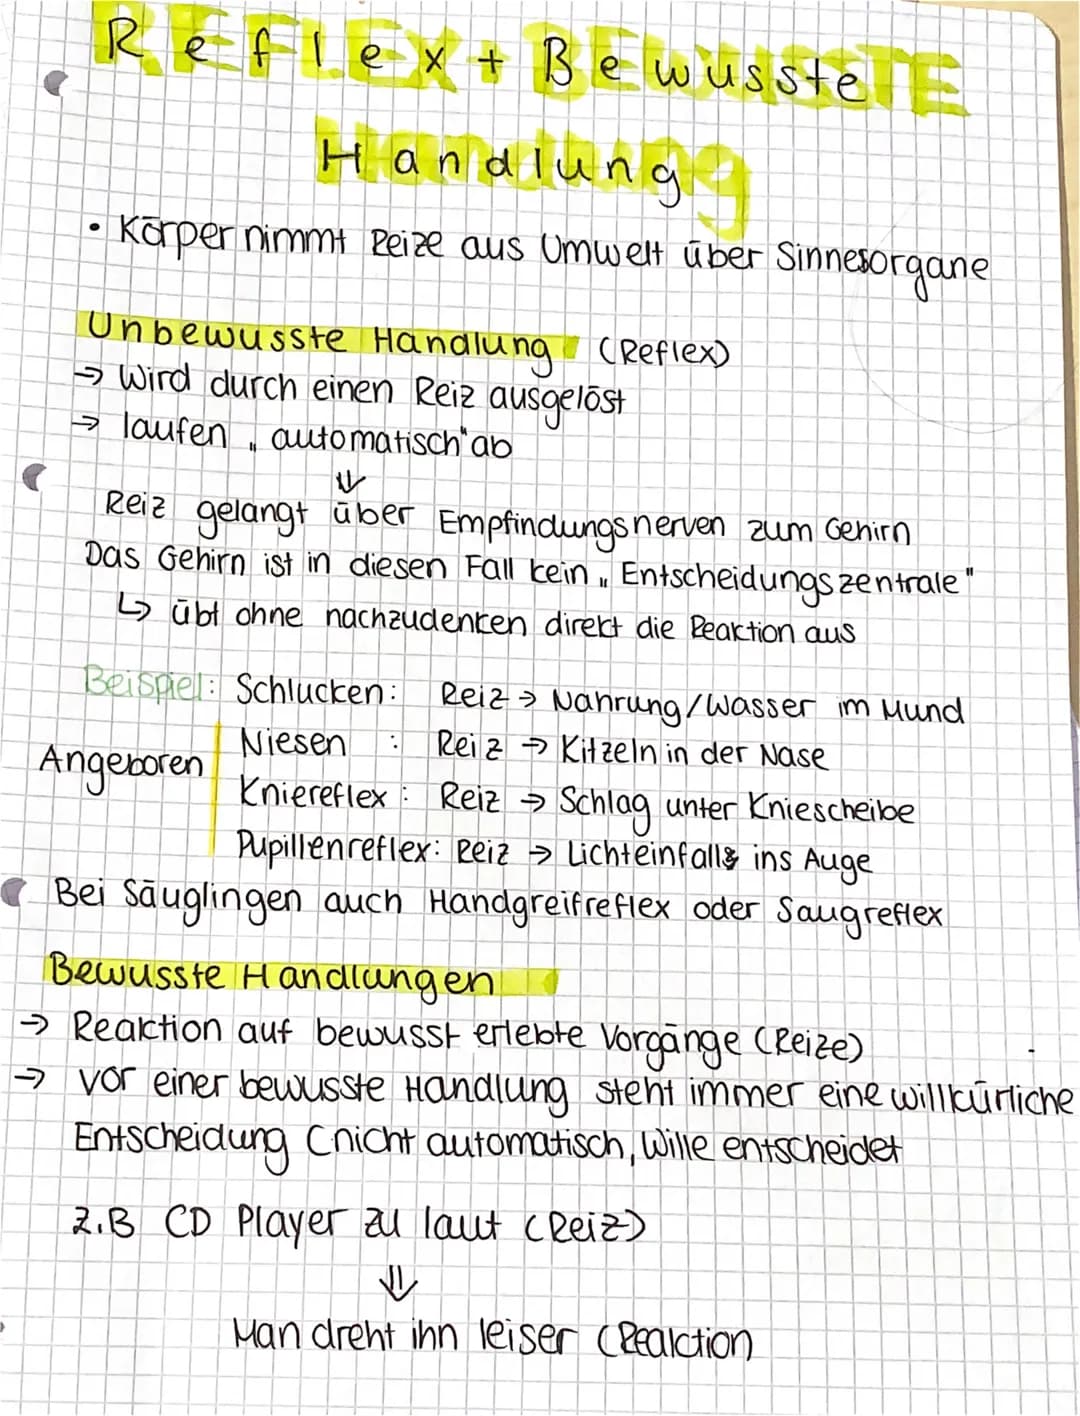 Reflex + Bewusste
Handlung
• Körper nimmt Reize aus Umwelt über Sinnesorgane
Unbewusste Handlung (Reflex)
→ Wird durch einen Reiz ausgelöst
→ laufen „automatisch" ab
⇓
Reiz gelangt über Empfindungsnerven zum Gehirn
Das Gehirn ist in diesen Fall kein „Entscheidungszentrale"
↳ übt ohne nachzudenken direkt die Reaktion aus
Beispiel: Schlucken: Reiz → Nahrung/Wasser im Mund
Niesen : Reiz → Kitzeln in der Nase
Angeboren
Kniereflex : Reiz → Schlag unter Kniescheibe
Pupillenreflex: Reiz → Lichteinfall ins Auge
Bei Säuglingen auch Handgreifreflex oder Saugreflex
Bewusste Handlungen
→ Reaktion auf bewusst erlebte Vorgänge (Reize)
→ vor einer bewusste Handlung steht immer eine willkürliche
Entscheidung (nicht automatisch, Wille entscheidet
z.B CD Player zu laut (Reiz)
⇓
Man dreht ihn leiser (Reaktion